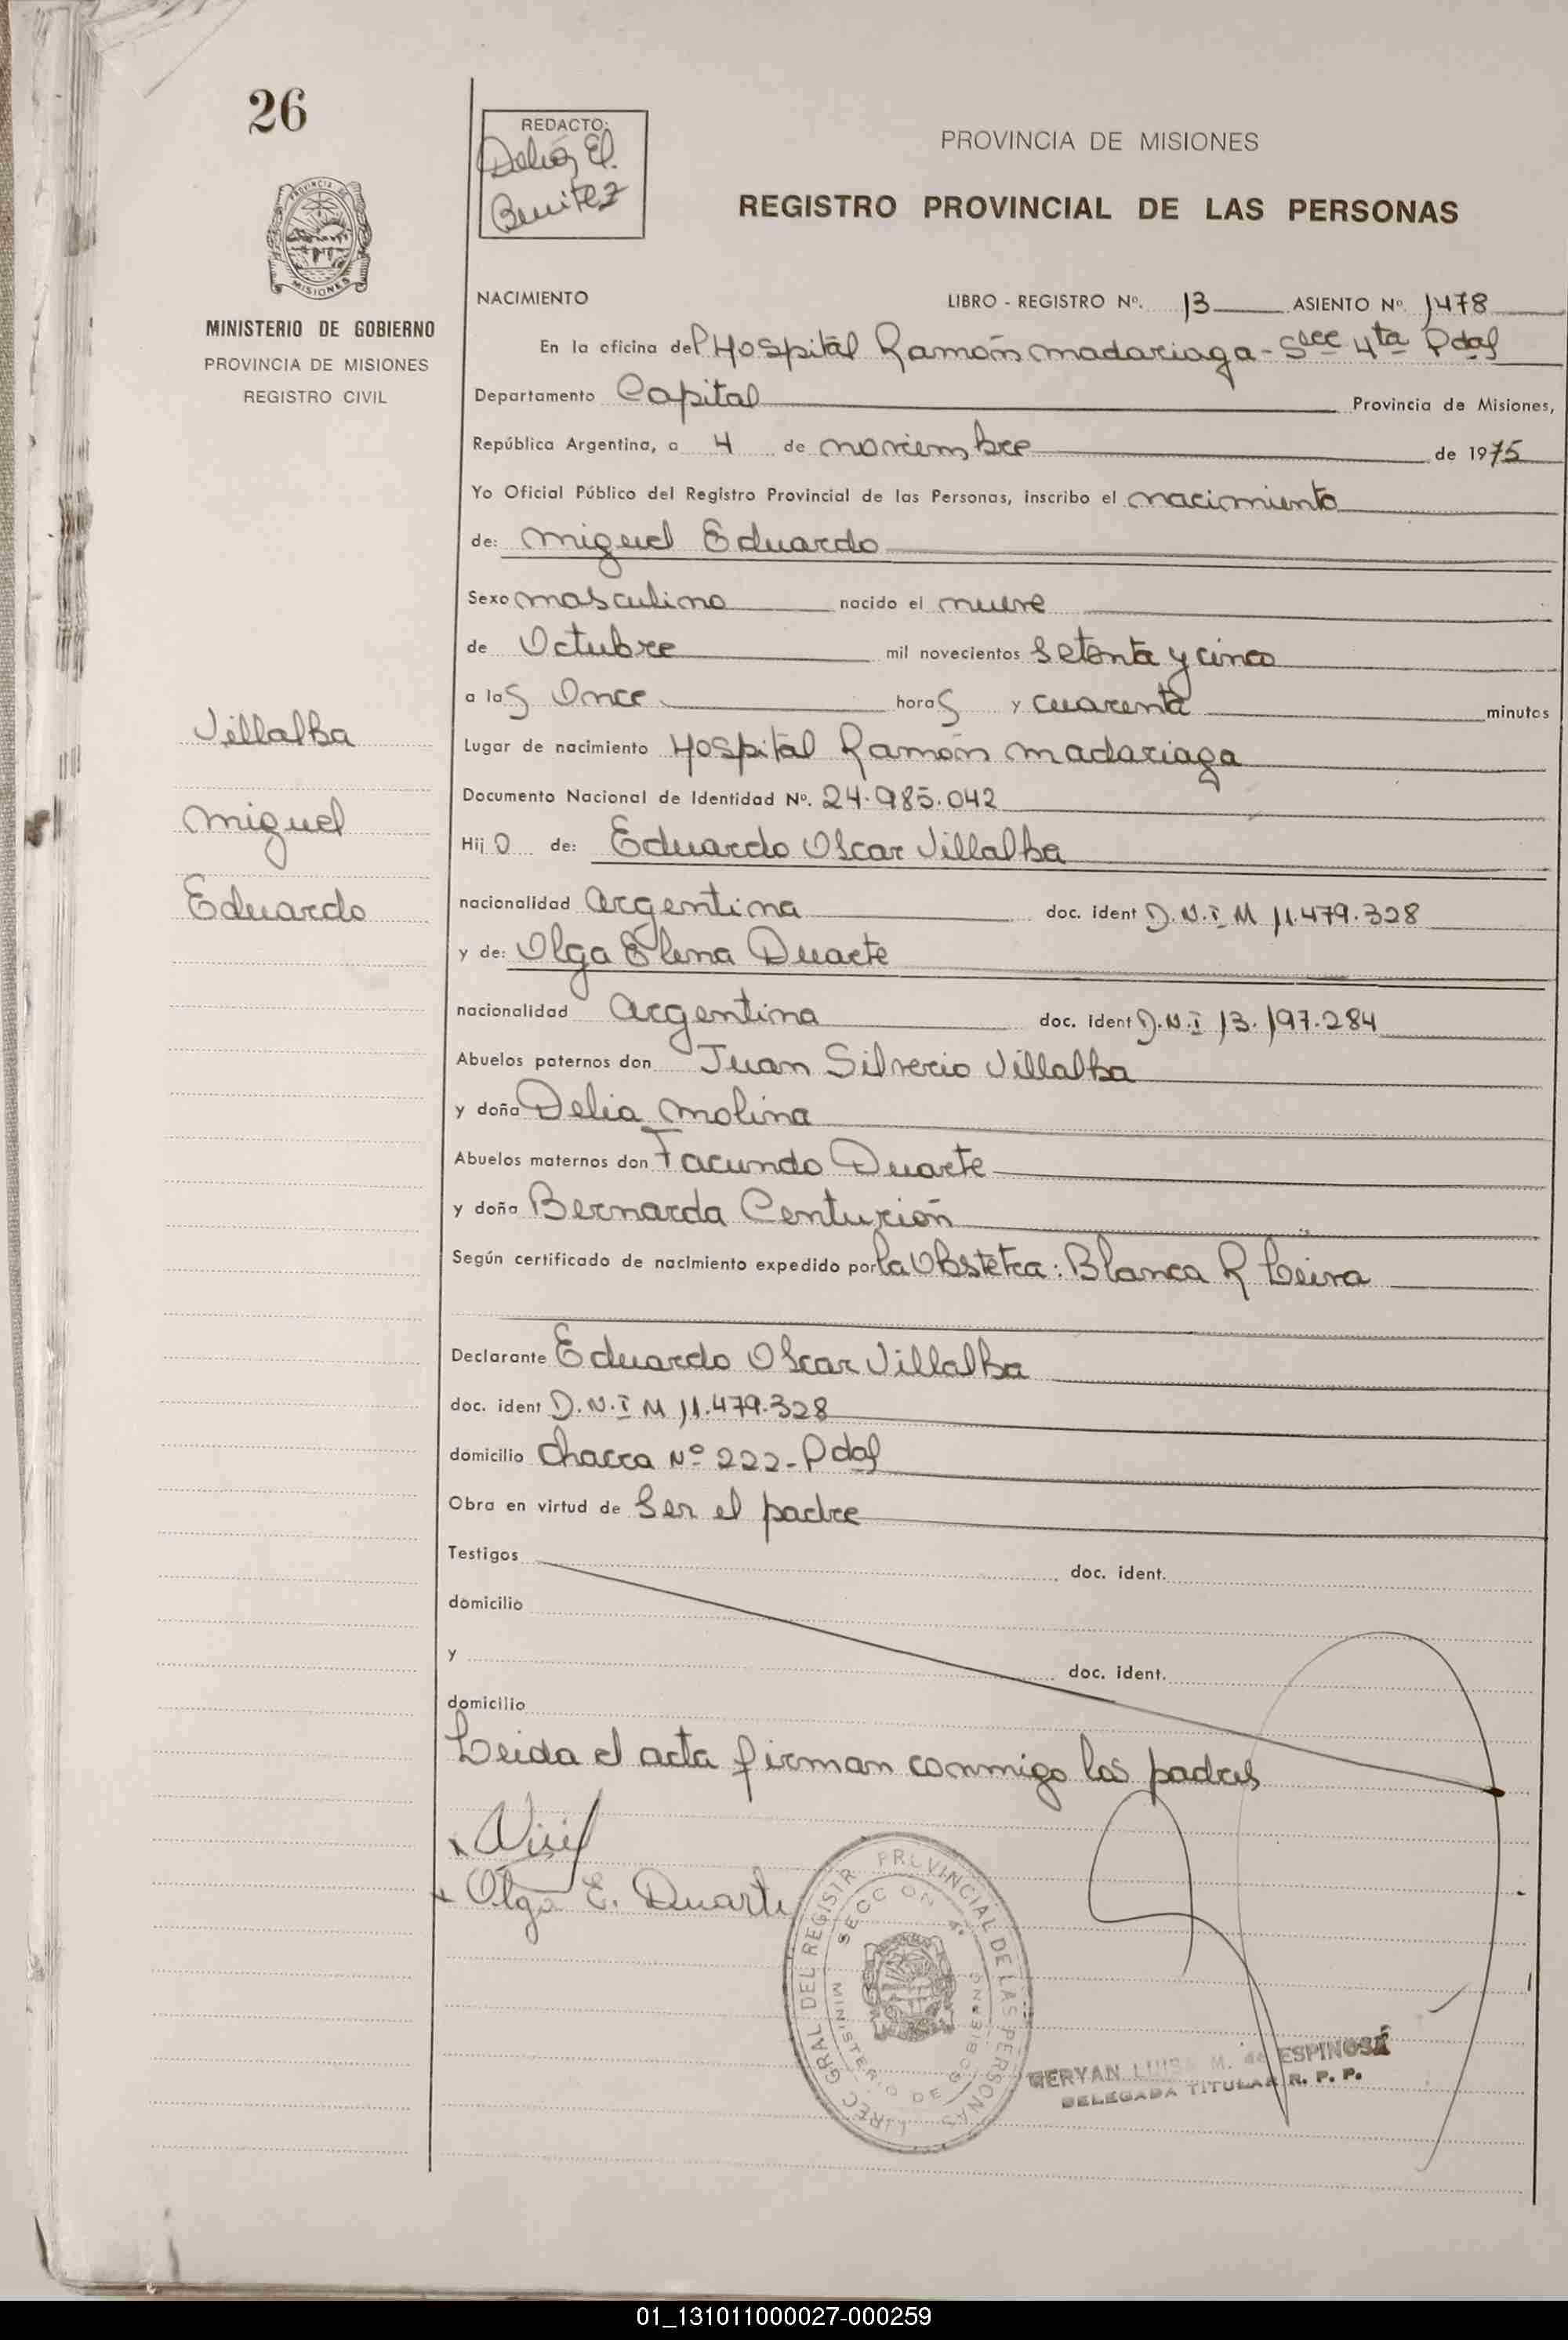 26
REDACTO:
Delia El.
Benitez
PROVINCIA DE MISIONES
REGISTRO PROVINCIAL DE LAS PERSONAS
PROVINCIA DE
MISIONES
MINISTERIO DE GOBIERNO
PROVINCIA DE MISIONES
REGISTRO CIVIL
NACIMIENTO LIBRO - REGISTRO Nº. 13 ASIENTO Nº. 1478
En la oficina del Hospital Ramón madariaga - Secc 4ta Pdas
Departamento Capital Provincia de Misiones,
República Argentina, a 4 de noviembre de 1975
Yo Oficial Público del Registro Provincial de las Personas, inscribo el nacimiento
de: miguel Eduardo
Sexo masculino nacido el nueve
de Octubre mil novecientos Setenta y cinco
a las Once horas y cuarenta minutos
Lugar de nacimiento Hospital Ramón madariaga
Documento Nacional de Identidad Nº. 24.985.042
Hijo de: Eduardo Oscar Villalba
nacionalidad argentina doc. ident D.N.I M 11.479.328
y de: Olga Elena Duarte
nacionalidad argentina doc. ident D.N.I 13.197.284
Abuelos paternos don Juan Silverio Villalba
y doña Delia molina
Abuelos maternos don Facundo Duarte
y doña Bernarda Centurión
Según certificado de nacimiento expedido por la Obstetra: Blanca R Leiva
Declarante Eduardo Oscar Villalba
doc. ident D.N.I M 11.479.328
domicilio chacra Nº 222 - Pdas
Obra en virtud de Ser el padre
Testigos doc. ident.
domicilio
y doc. ident.
domicilio
Leida el acta firman conmigo los padres
Villalba
miguel
Eduardo
Olga E. Duarte
DIREC GRAL DEL REGISTR PROVINCIAL DE LAS PERSONAS
SECCION 4ª
MINISTERIO DE GOBIERNO
NERYAN LUISA M. de ESPINOSA
DELEGADA TITULAR R. P. P.
01_131011000027-000259